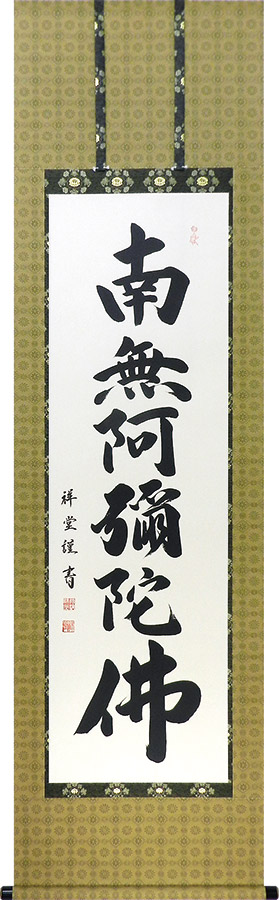 南無阿彌陀佛
祥堂謹書